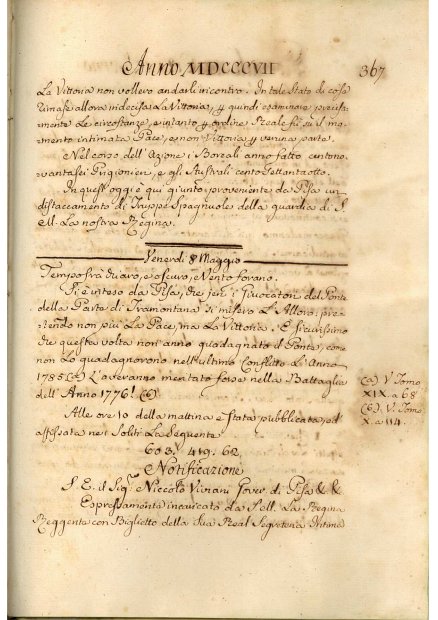 Anno MDCCCVII 367
La Vittoria non vollero andarli incontro. In tale Stato di cose
rimase allora indecisa La Vittoria, e quindi esaminate
Le circostanze, e intanto ordine Reale fù sul
mento intimata Pace, e non Vittoria veruna parte.
Nel corso dell' Azione i Boreali anno fatto centono
vantasei Prigionieri, e agli Australi cento Settantaotto.
In quest' oggi è qui giunto, proveniente da Pisa un
distaccamento di Truppe Spagnuole della guardia di S
M. La nostra Regina.
Venerdì 8 Maggio
Tempo frà duaro, e oscuro, e Vento forano.
Si è inteso da Pisa, che jeri i Giuocatori del Ponte
della Parte di Tramontana si misero L'Alloro; pre
tendendo non più La Pace, ma La Vittoria. È sicurissimo
che questa volta non anno guadagnato il Ponte, come
non Lo guadagnorono nell' ultimo Conflitto L'Anno
1785 (a) L'averanno meritato forse nella Battaglia
dell' Anno 1776! (b)
(a) V. Tomo
XIX. a 68
(b). V. Tomo
X. a 114.
Alle ore 10 della mattina è stata pubblicata, ed
affissata nei Soliti La Seguente
603. 419. 62.
Notificazione
S. E. il Sig.r Niccolò Viviani Gov.re di Pisa & &
Espressamente incaricato da S. M. La Regina
Reggente con Biglietto della Sua Real Segreteria Intima